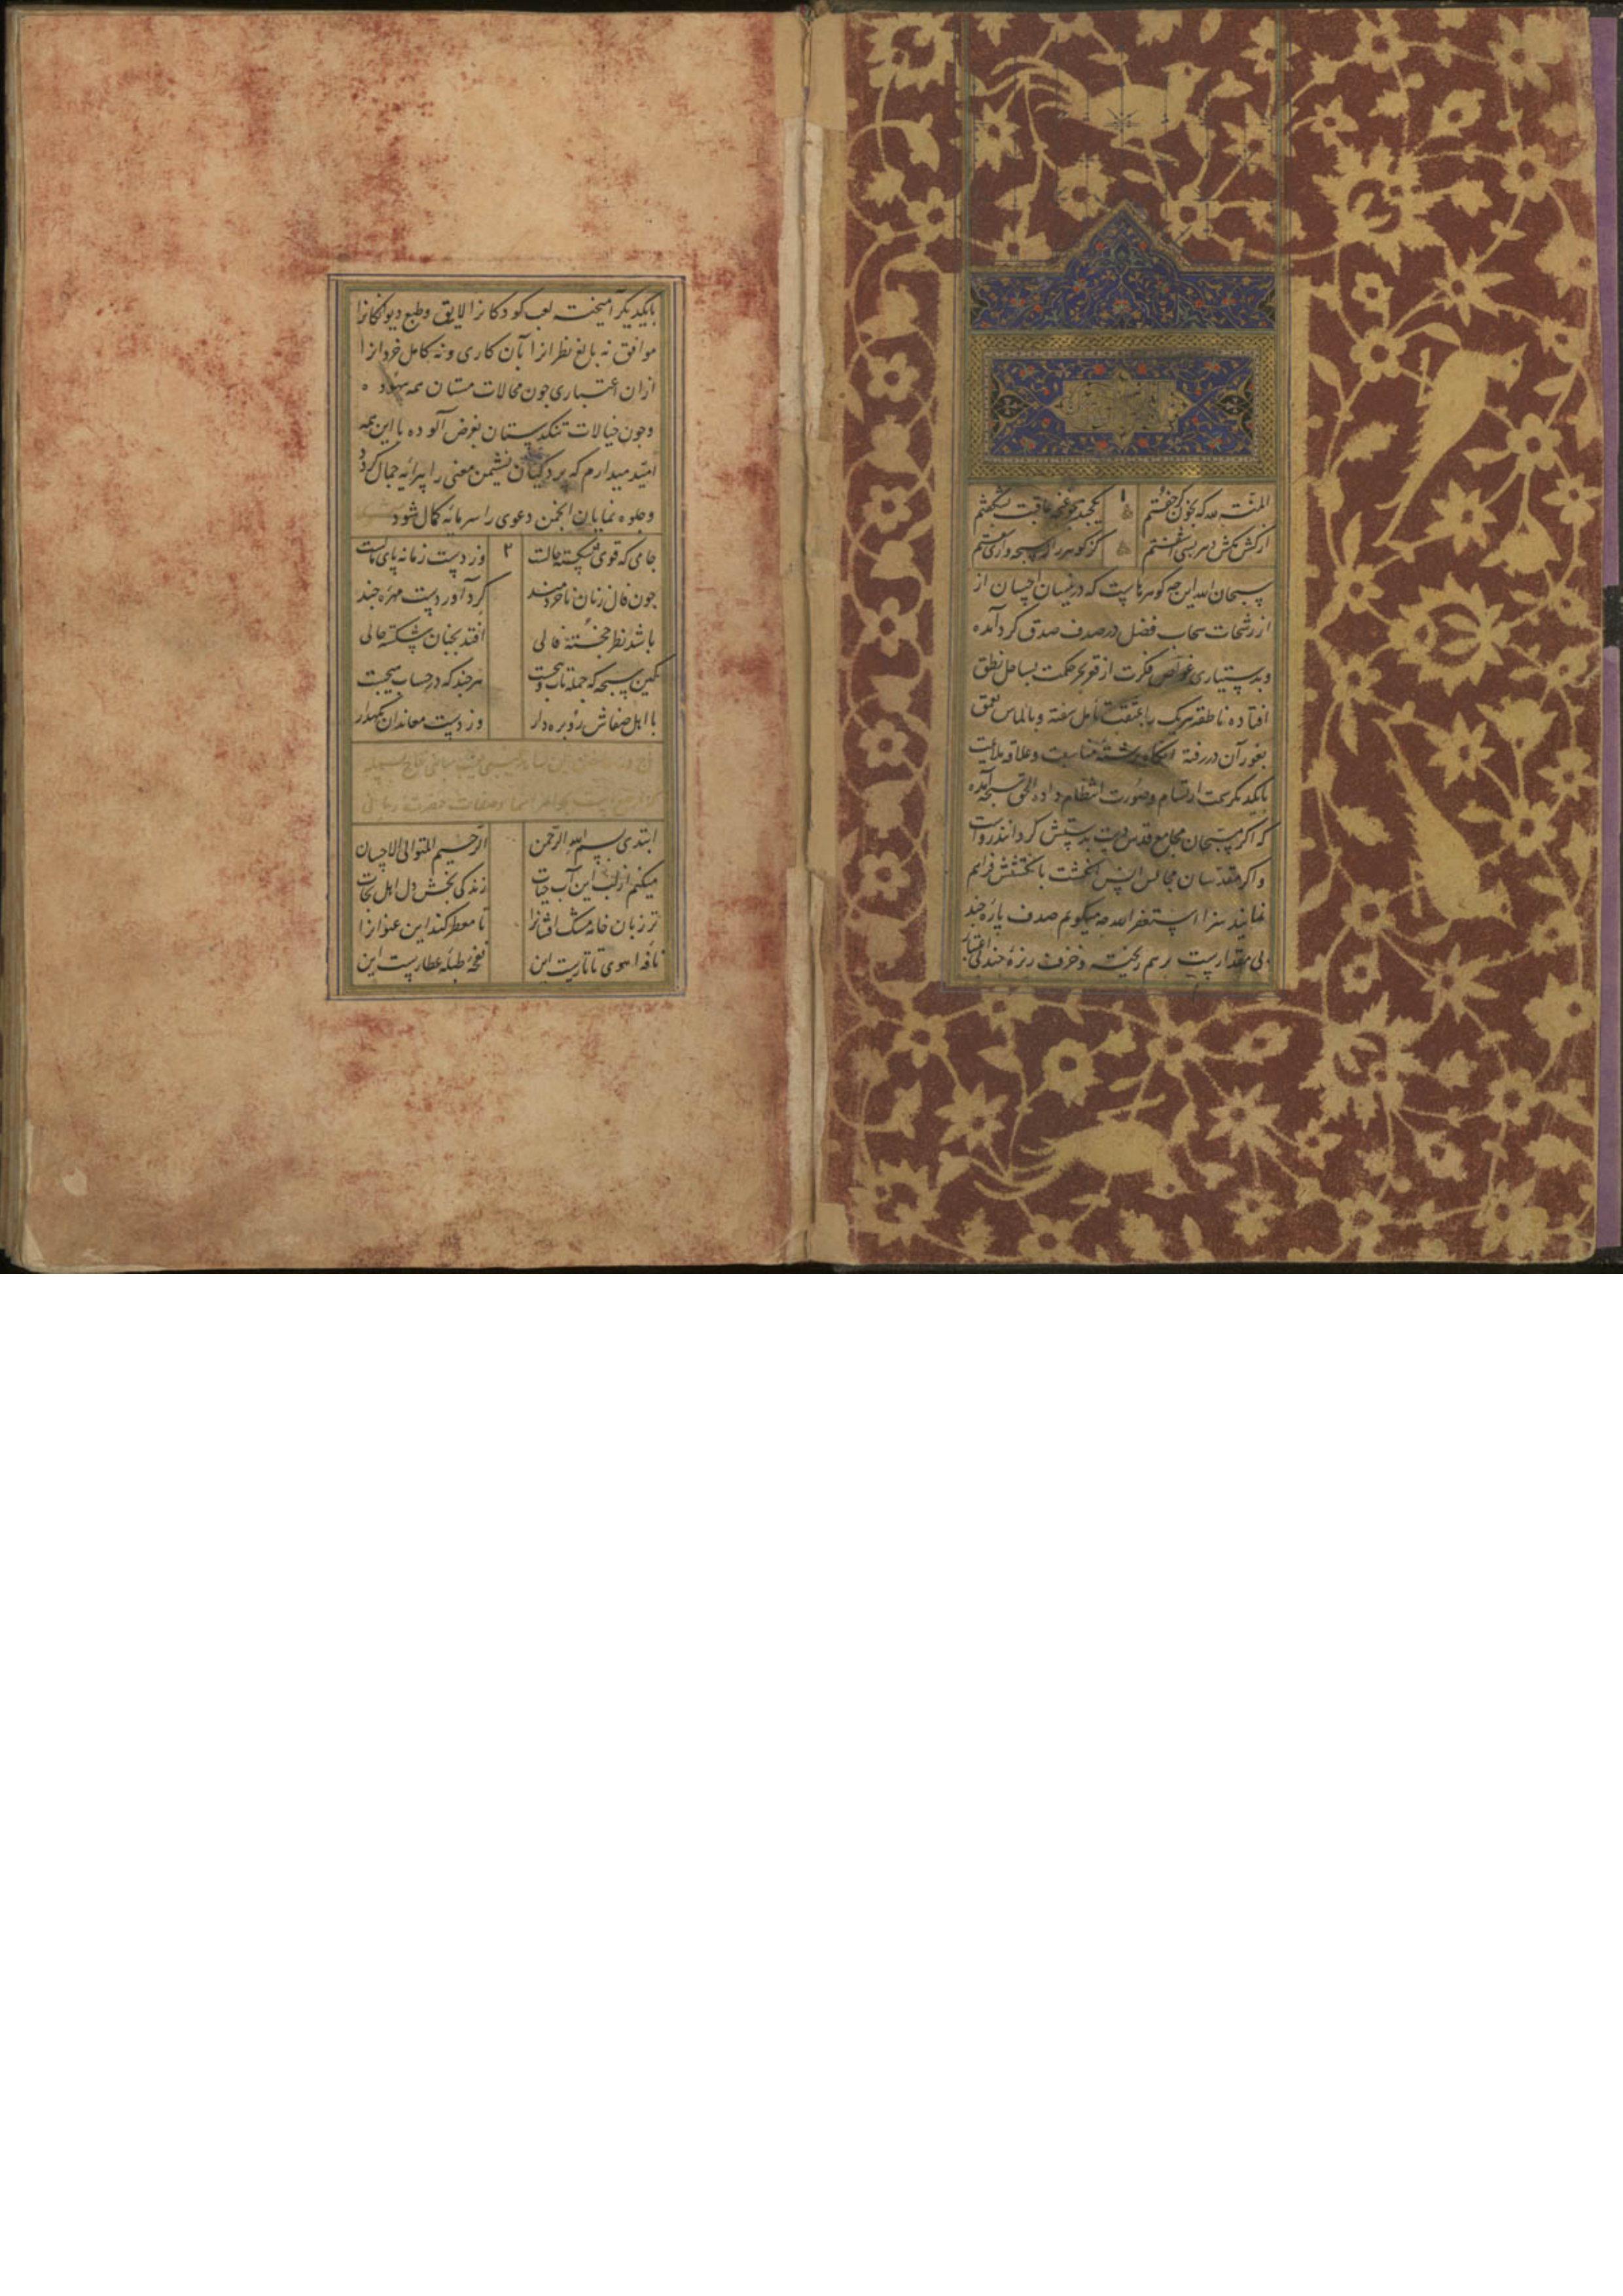 المنة لله که بخون گر خفتم یکچند چو غنچه عاقبت بشکفتم
از کش مکش دهر بسی آشفتم کز گوهر راز سبحه واری سفتم
سبحان الله این چه گوهرهاست که در نیسان احسان از
از رشحات سحاب فضل در صدف صدق گرد آمده
و بدستیاری غواص فکرت از قعر بحر حکمت بساحل نطق
افتاده ناطقه هر یک را بمثقب تأمل سفته و بالماس تعمق
بغور آن در رفته آنگاه برشته مناسبت و علاقه ملایمت
بایکدیگر سمت ارتسام و صورت انتظام داده الحق سبحه آمده
که اگر مسبحان مجامع قدس دست بدستش گردانند رواست
واگر مقدسان مجالس انس انگشت بانگشتش فراهم
نمایند سزا استغفر الله چه میگویم صدف پاره چند
بی مقدارست بر هم ریخته و خزف ریزه چند بی اعتبار
بایکدیگر آمیخته لعب کودکانرا لایق و طبع دیوانگانرا
موافق نه بالغ نظرانرا بآن کاری و نه کامل خردانرا
ازان اعتباری چون محالات مستان همه بیهوده
وچون خیالات تنگدستان بغرض آلوده با این همه
امید میدارم که پردگیان نشیمن معنی را پیرایه جمال گردد
و جلوه نمایان انجمن دعوی را سرمایه کمال شود
جامی که قوی شکسته حالست ۲ وز دست زمانه پای مالست
چون فال زنان ناخردمند گرد آورده ست مهره چند
باشد نظر خجسته فالی افتد بچنان شکسته حالی
همین سبحه که جمله تاب و پیچست هر چند که در حساب هیچست
با اهل صفاش روبره دار وز دست معاندان نگهدار
ابتدی بسم الله الرحمن الرحیم المتوالی الاحسان
میکنم از لب این آب حیات زندگی بخش دل اهل نجات
تر زبان خامه مشک افشانرا تا معطر کند این عنوانرا
نافه آهوی تاتارست این نفحه طبله عطارست این